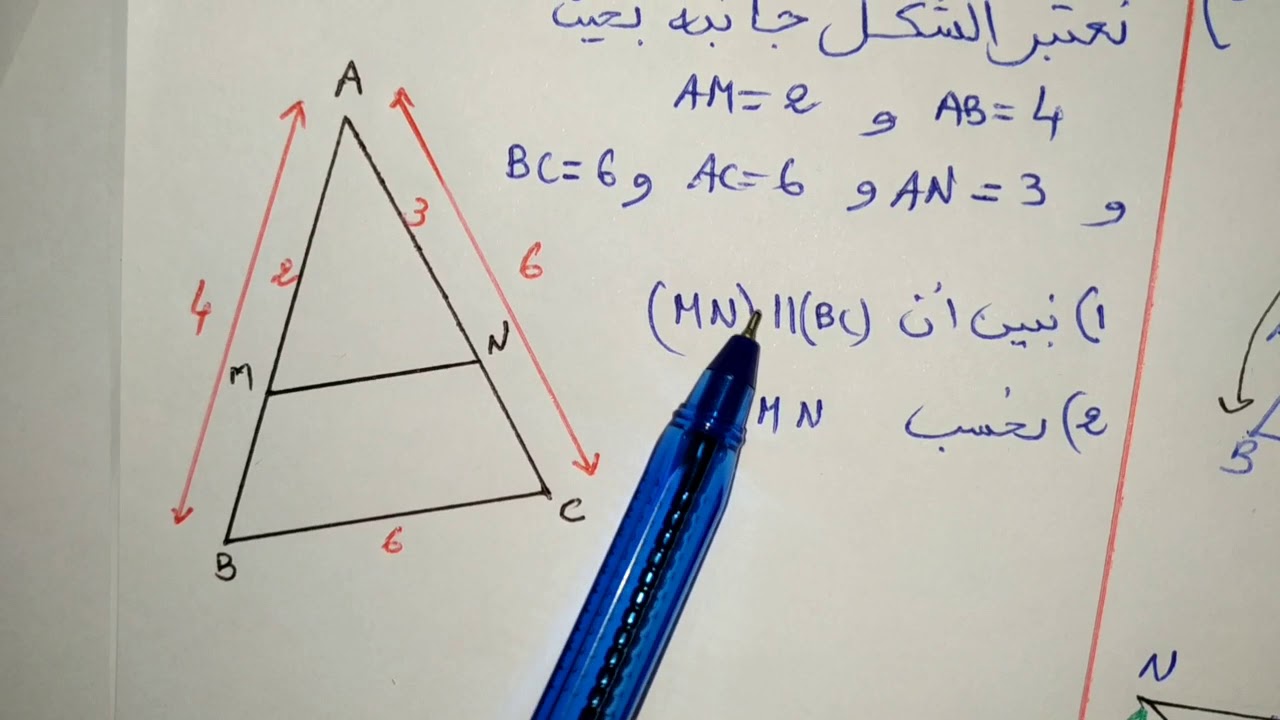 نعتبر الشكل جانبه بحيث
AB=4 و AM=2
و AN=3 و AC=6 و BC=6
1) نبين أن (MN)//(BC)
2) نحسب MN
A
3
6
2
4
N
M
C
6
B
B
N